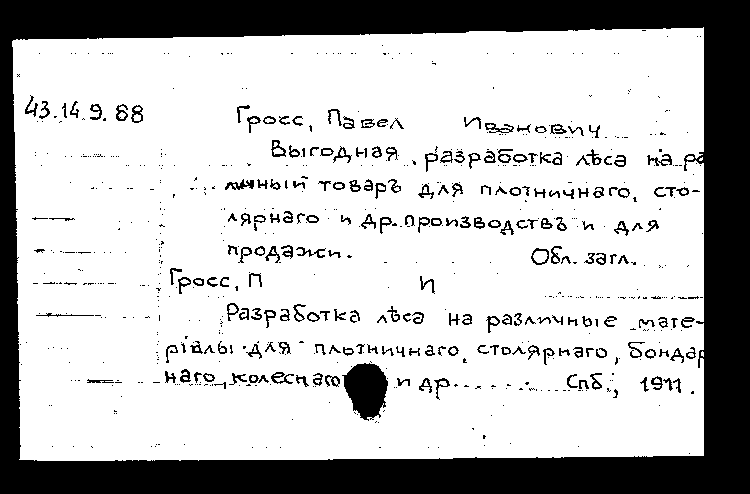 43.14.9.88
Гросс, Павел Иванович
Выгодная разработка лѣса на ра
личный товаръ для плотничнаго, сто-
лярнаго и др. производствъ и для
продажи. Обл. загл.
Гросс, П И
Разработка лѣса на различные мате-
ріалы для плотничнаго, столярнаго, бондар
наго, колеснаго и др. . . . . . Спб., 1911.